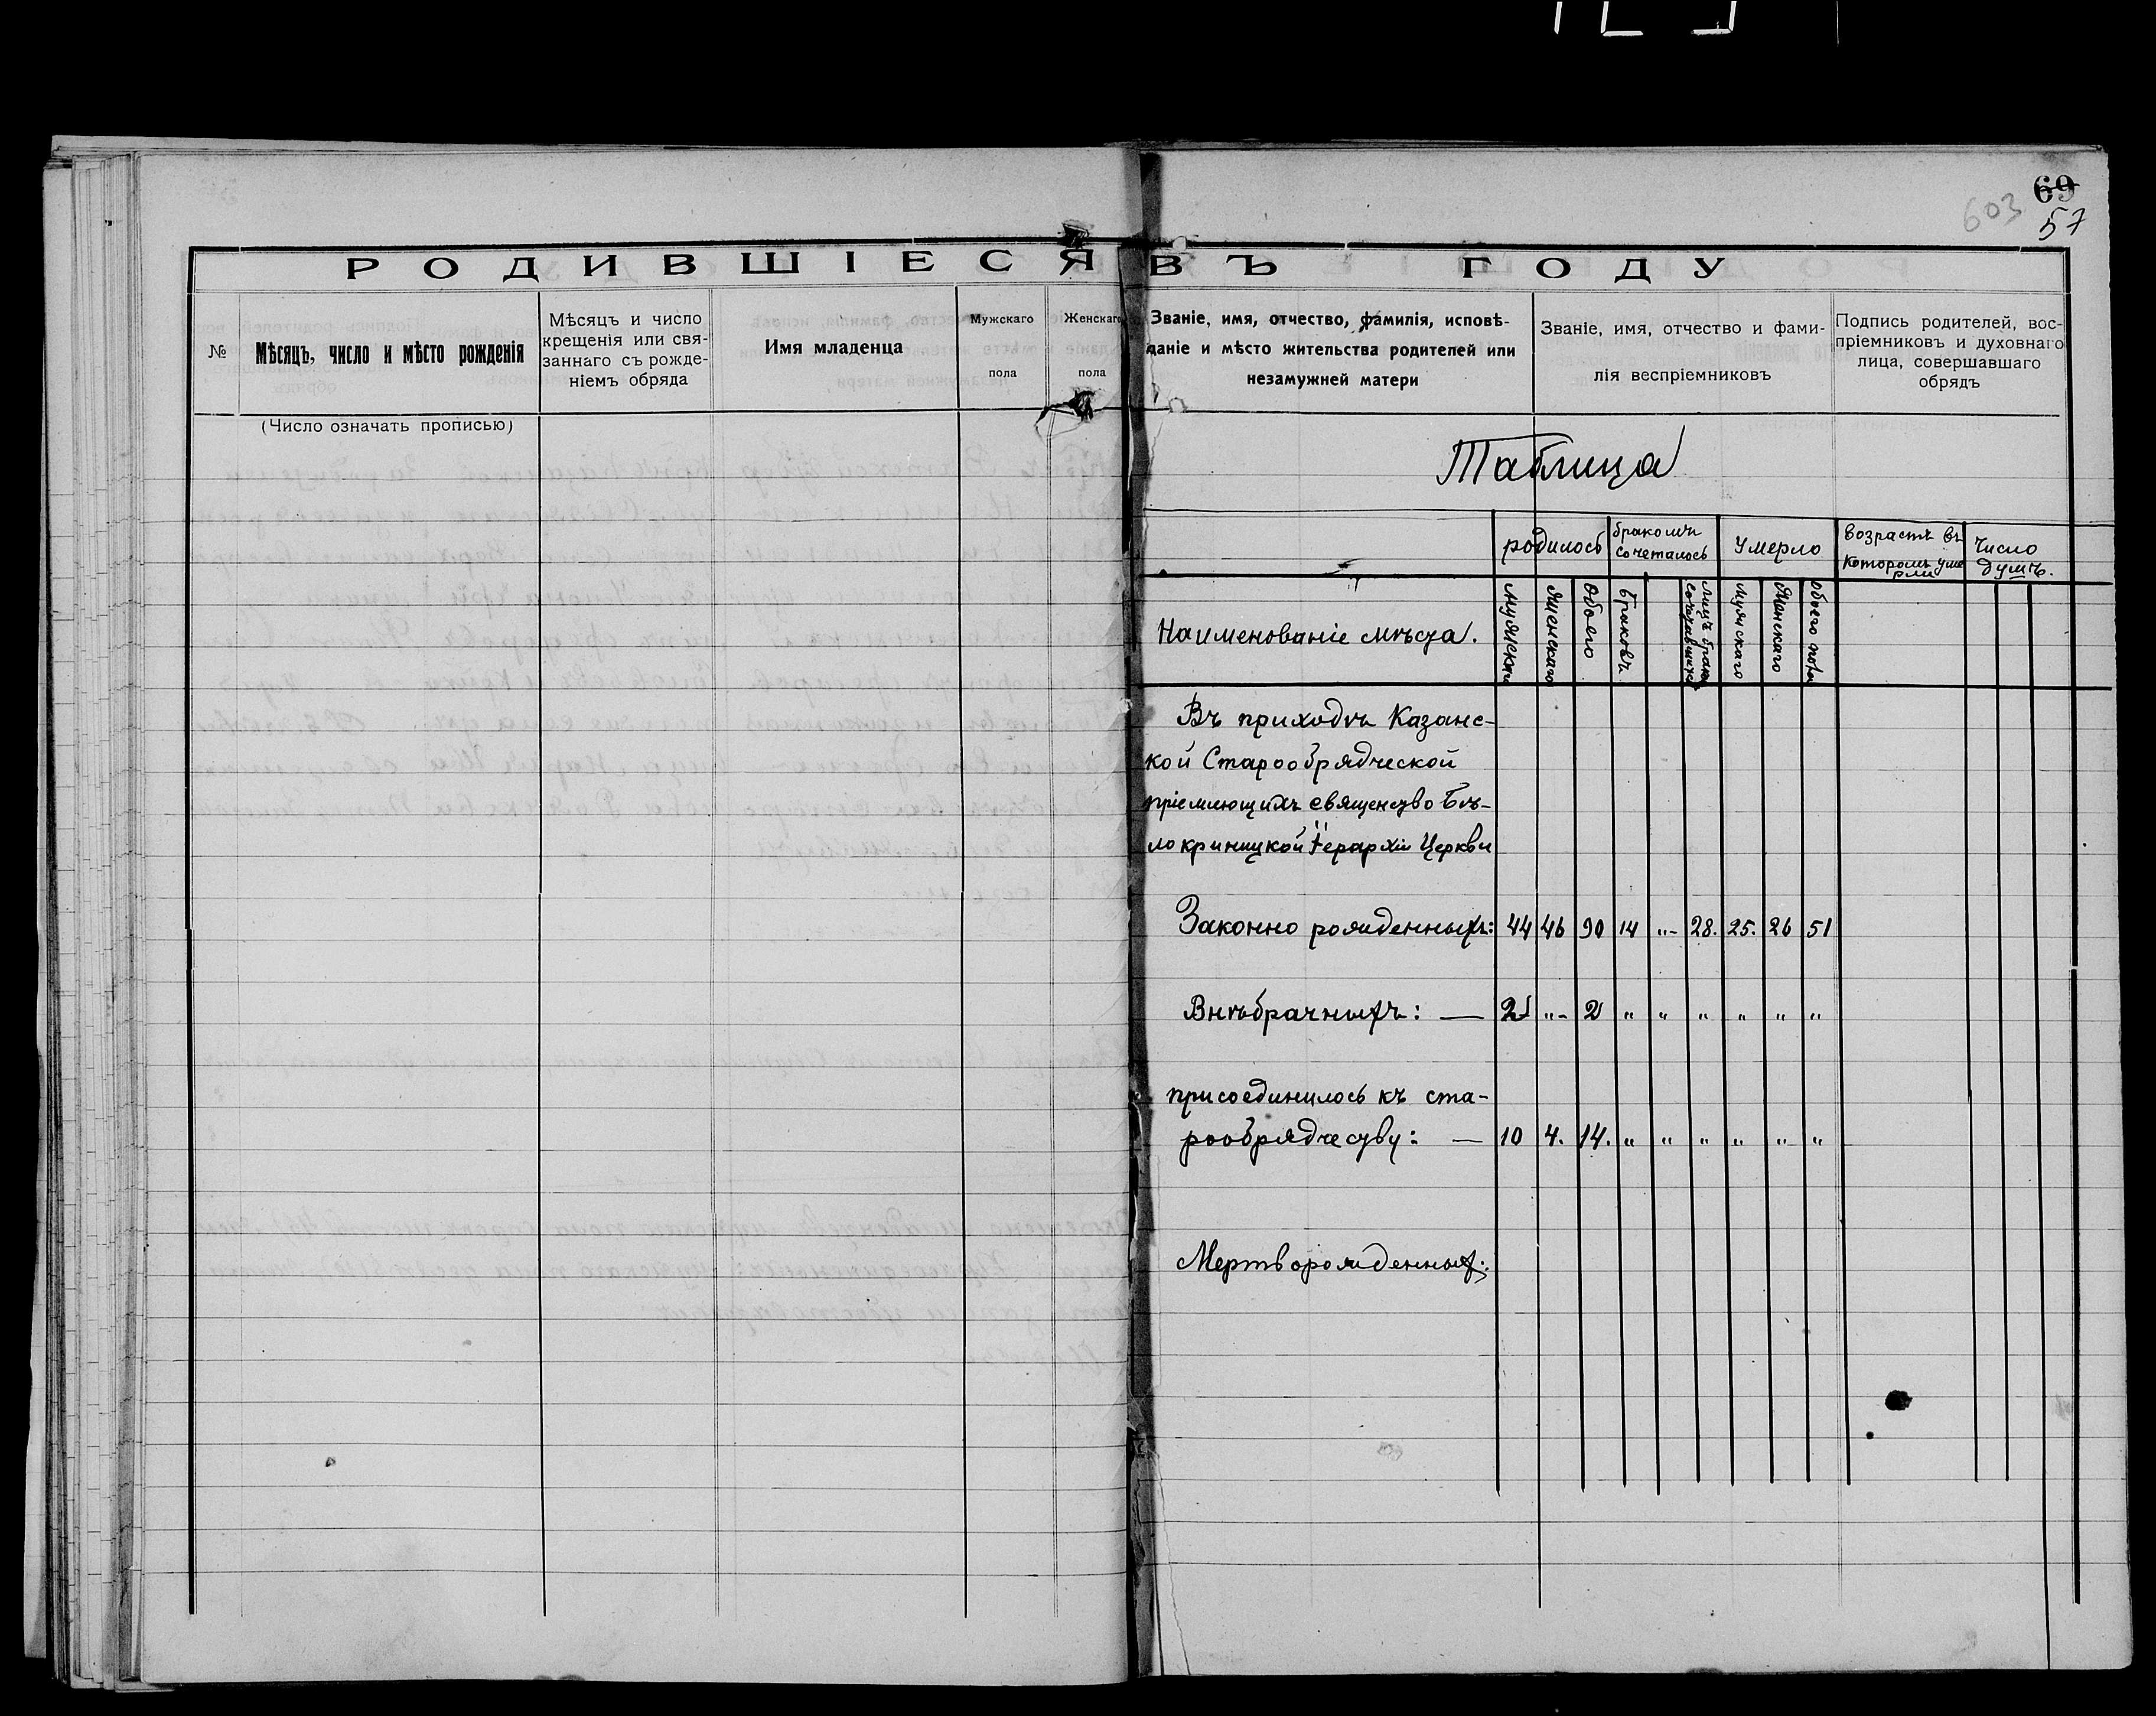 69
603
57
РОДИВШІЕСЯ ВЪ ГОДУ
№
Мѣсяцъ, число и мѣсто рожденія
Мѣсяцъ и число
крещенія или свя-
заннаго съ рожде-
ніемъ обряда
Имя младенца
Мужскаго
пола
Женскаго
пола
Званіе, имя, отчество, фамилія, исповѣ-
даніе и мѣсто жительства родителей или
незамужней матери
Званіе, имя, отчество и фами-
лія веспріемниковъ
Подпись родителей, вос-
пріемниковъ и духовнаго
лица, совершавшаго
обрядъ
(Число означать прописью)
Таблица
родилось
бракомъ
сочеталось
Умерло
возрастъ въ
которомъ уме
рли
Число
думъ.
Наименованіе мѣста.
Мужскаго
Женскаго
Обоего
Браковъ
Лицъ бракомъ
сочетавшихся
Мужскаго
Женскаго
Обоего пола
Въ приходѣ Казанс-
кой Старообрядческой
пріемлющихъ священство Бѣ-
локриницкой Іерархіи Церкви
Законно рожденныхъ: 44 46 90 14 „- 28. 25. 26 51
Внѣбрачныхъ: — 2 „- 2 „ „ „ „ „ „
присоединилось къ ста-
рообрядчеству: — 10 4. 14. „ „ „ „ „ „
Мертворожденных: